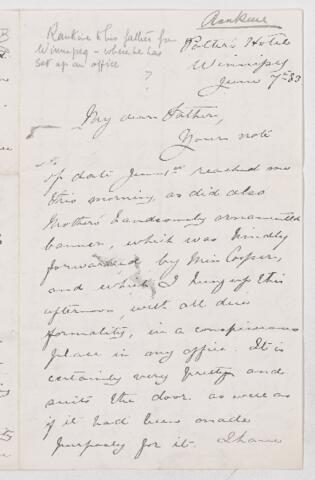 Rankine
Rankine to his father from
Winnipeg - where he has
set up an office
?
Potter's Hotel
Winnipeg
June 7th 83
My dear Father,
Yours note
of date June 1st reached me
this morning, as did also
Mother's handsomely ornamented
banner, which was kindly
forwarded by Miss Cooper,
and which I hung up this
afternoon, with all due
formality, in a conspicuous
place in my office. It is
certainly very pretty and
suits the door as well as
if it had been made
purposely for it. I have